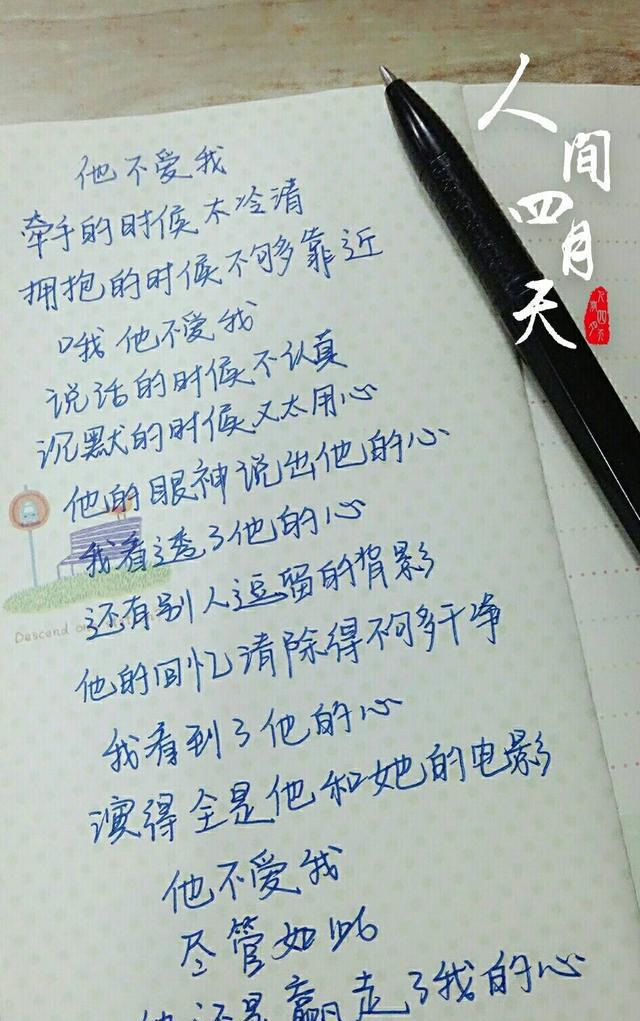 他不爱我
牵手的时候太冷清
拥抱的时候不够多靠近
哦他不爱我
说话的时候不认真
沉默的时候又太用心
他的眼神说出他的心
我看透了他的心
还有别人逗留的背影
他的回忆清除得不够多干净
我看到了他的心
演得全是他和她的电影
他不爱我
尽管如此
他还是赢走了我的心
Descend on
人间四月天